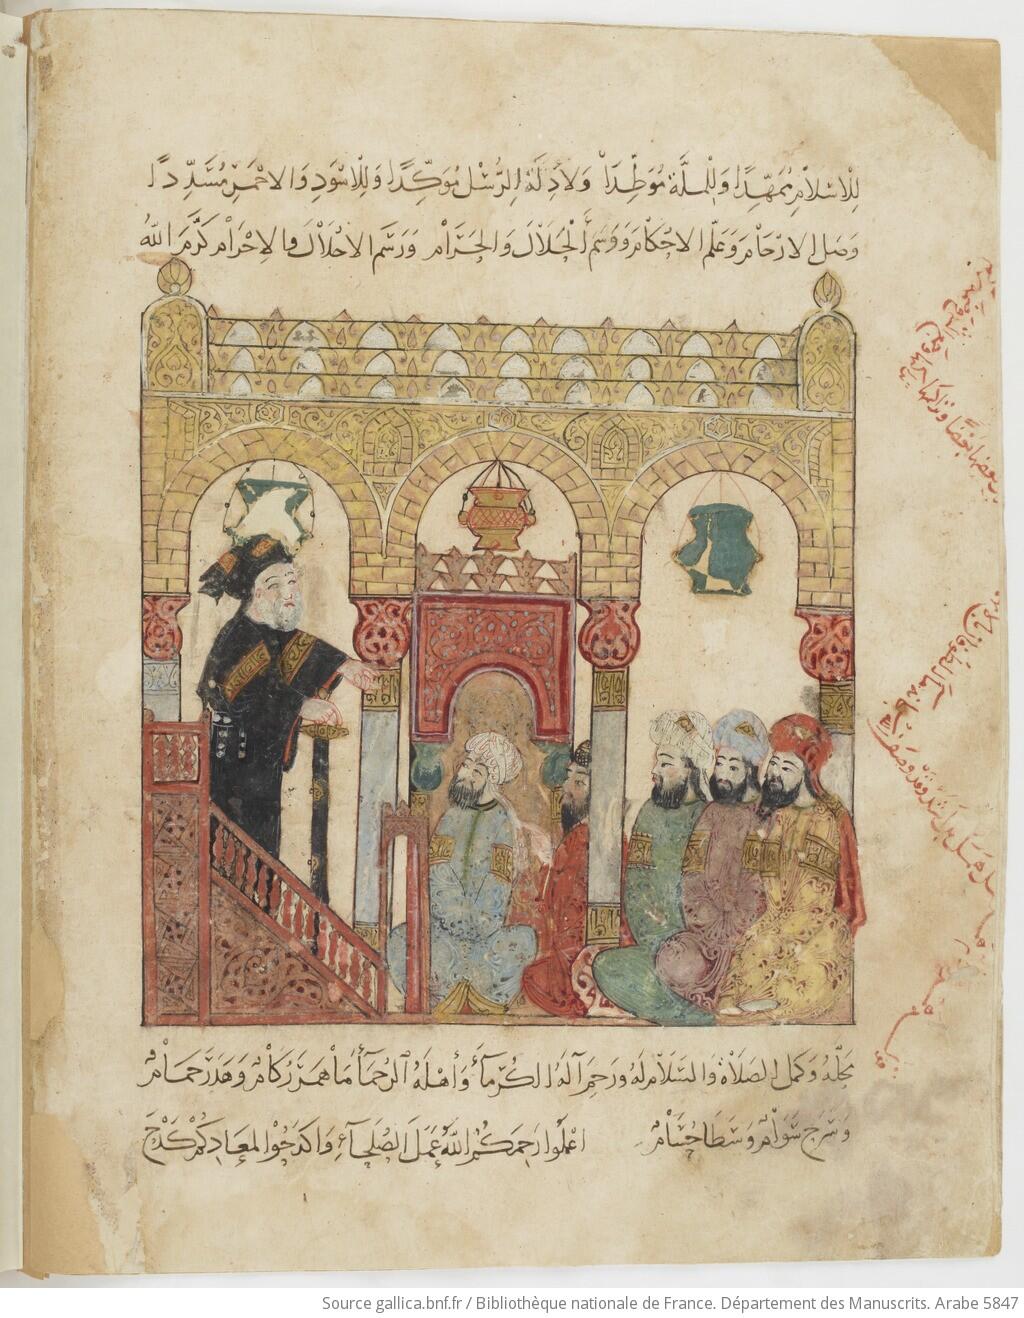 للاسلام ممهدا وللملة موطدا ولادلة الرسل موكدا وللاسود والاحمر مسددا
وصل الارحام وعلم الاحكام ووسم الحلال والحرام ورسم الاحلال والاحرام كرم الله
محله وكمل الصلاة والسلام له ورحم آله الكرماء وأهله الرحماء ما همر ركام وهدر حمام
وسرح سوام وسطا حسام اعملوا رحمكم الله عمل الصلحاء واكدحوا لمعادكم كدح
Source gallica.bnf.fr / Bibliothèque nationale de France. Département des Manuscrits. Arabe 5847